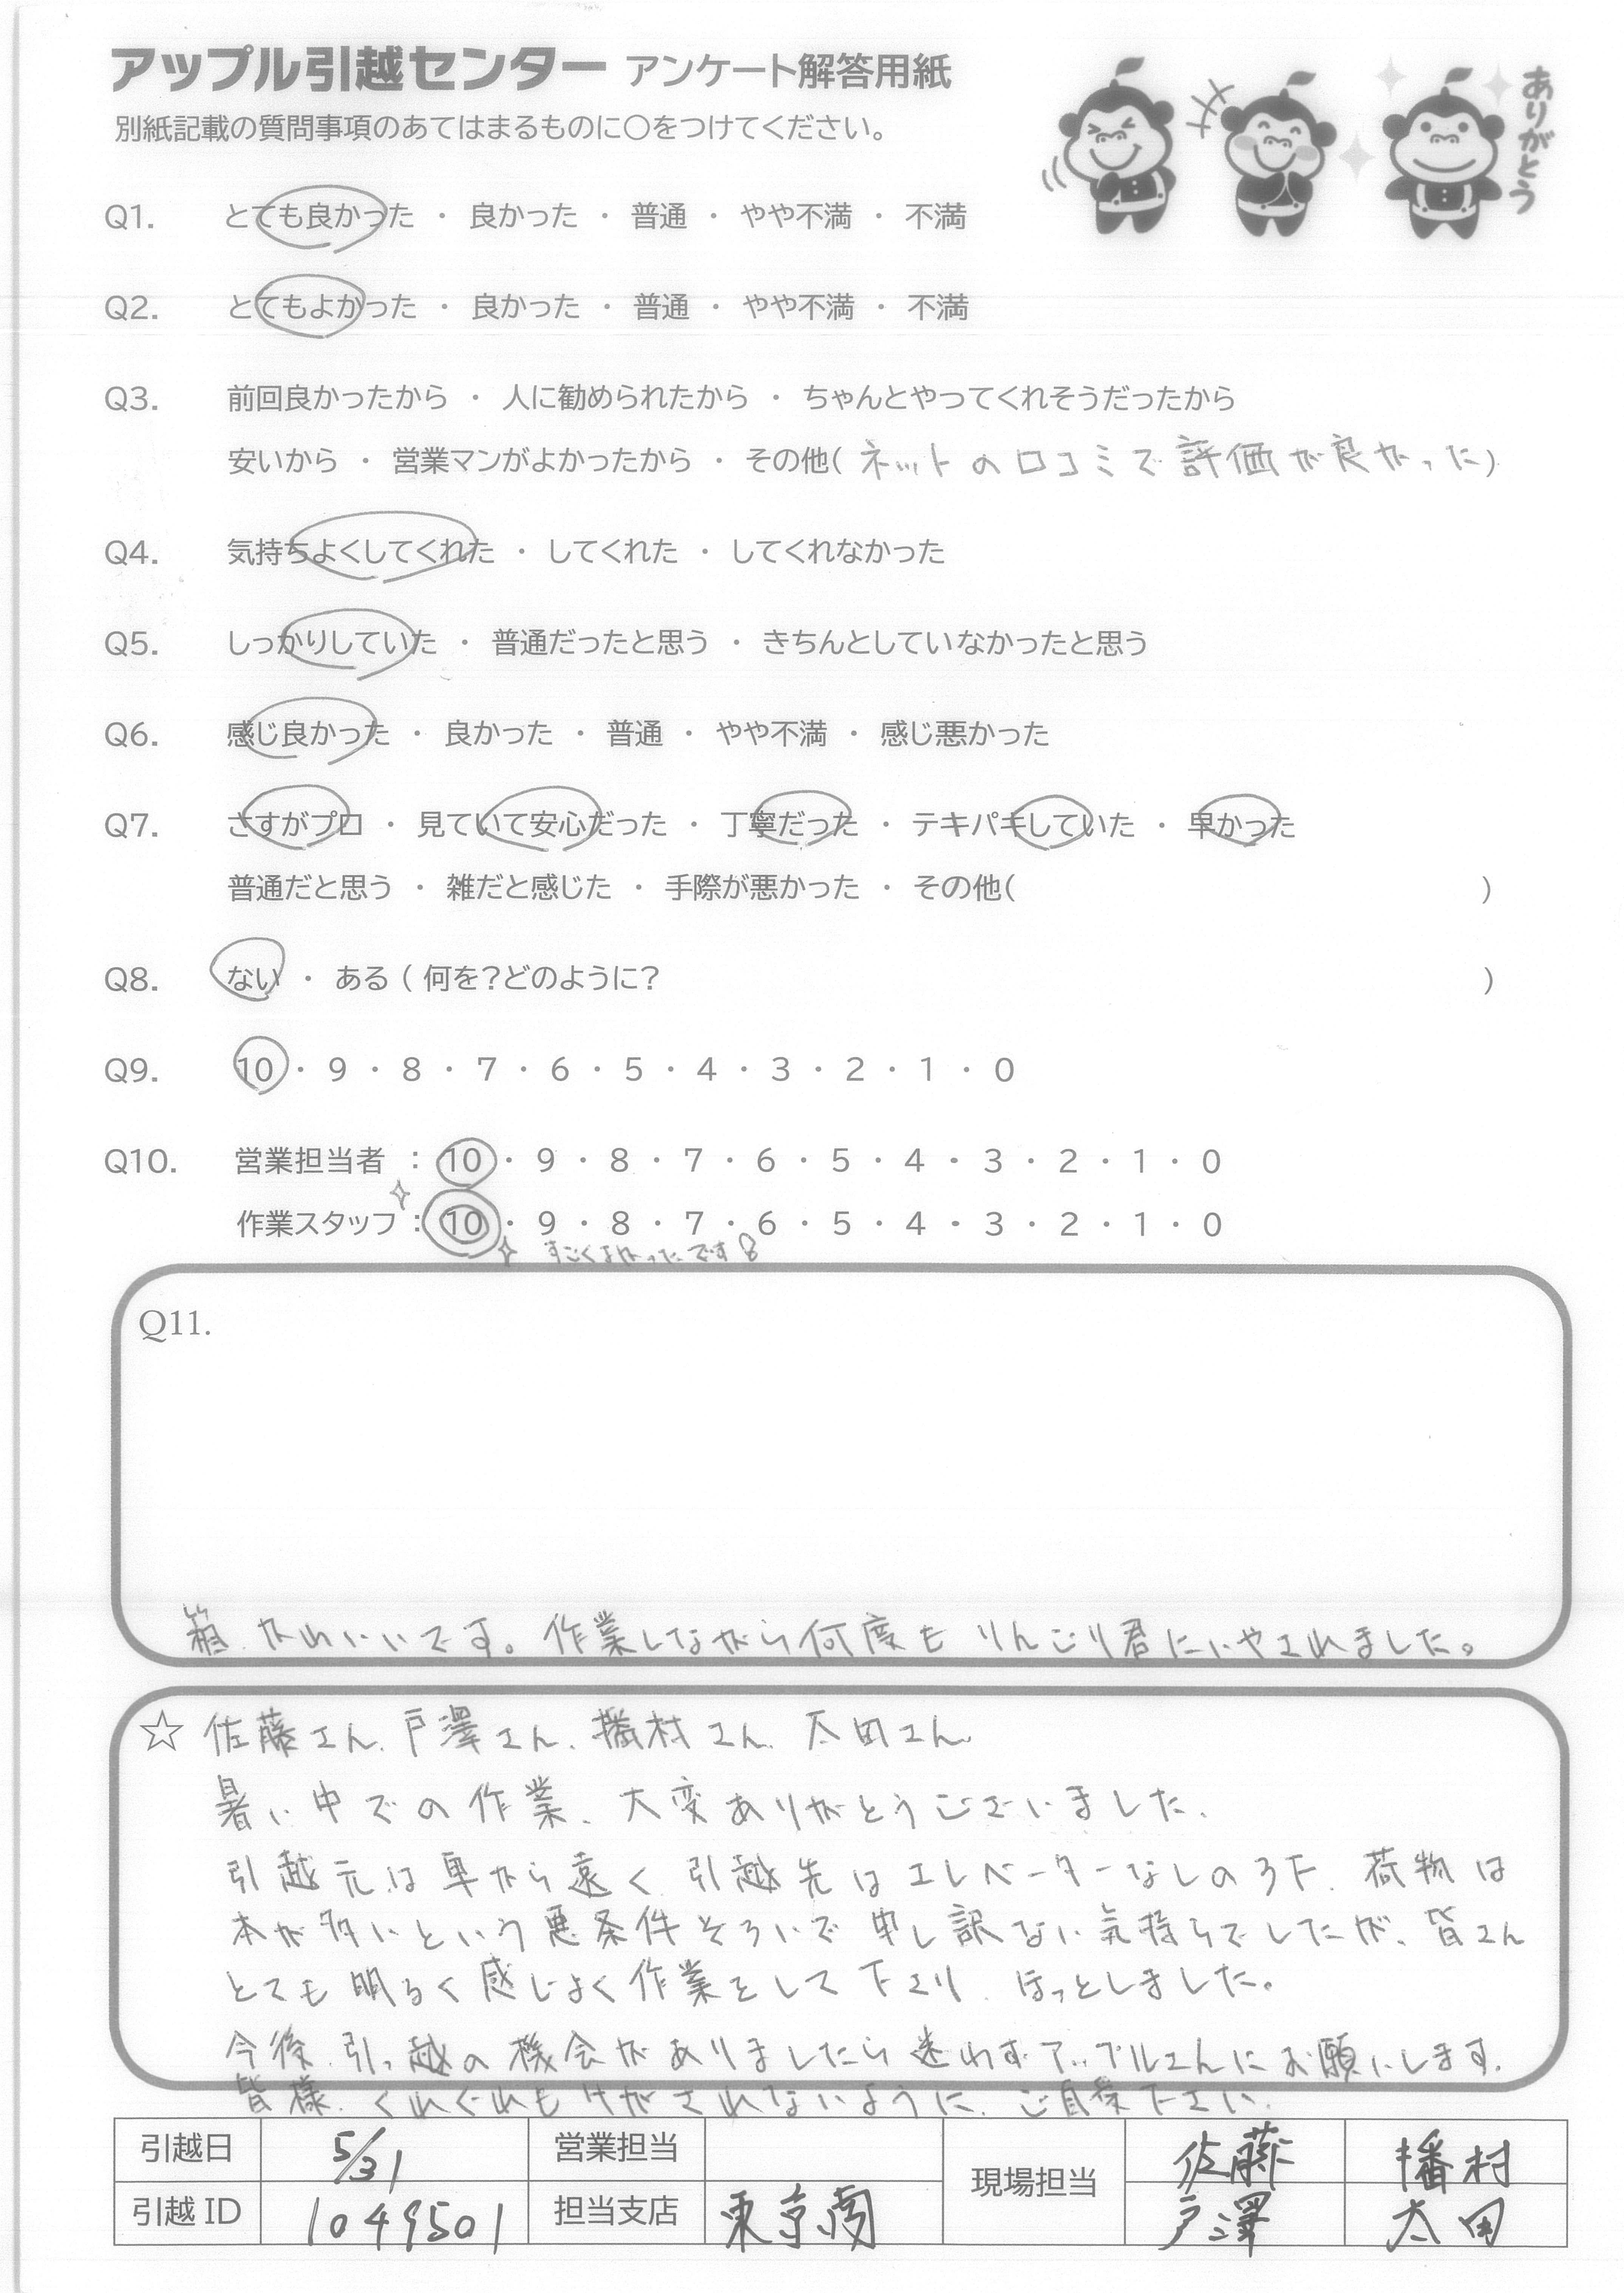 アップル引越センター アンケート解答用紙
ありがとう
別紙記載の質問事項のあてはまるものに○をつけてください。
Q1. とても良かった ・ 良かった ・ 普通 ・ やや不満 ・ 不満
Q2. とてもよかった ・ 良かった ・ 普通 ・ やや不満 ・ 不満
Q3. 前回良かったから ・ 人に勧められたから ・ ちゃんとやってくれそうだったから
安いから ・ 営業マンがよかったから ・ その他( ネットの口コミで評価が良かった )
Q4. 気持ちよくしてくれた ・ してくれた ・ してくれなかった
Q5. しっかりしていた ・ 普通だったと思う ・ きちんとしていなかったと思う
Q6. 感じ良かった ・ 良かった ・ 普通 ・ やや不満 ・ 感じ悪かった
Q7. さすがプロ ・ 見ていて安心だった ・ 丁寧だった ・ テキパキしていた ・ 早かった
普通だと思う ・ 雑だと感じた ・ 手際が悪かった ・ その他( )
Q8. ない ・ ある ( 何を?どのように? )
Q9. 10 ・ 9 ・ 8 ・ 7 ・ 6 ・ 5 ・ 4 ・ 3 ・ 2 ・ 1 ・ 0
Q10. 営業担当者 : 10 ・ 9 ・ 8 ・ 7 ・ 6 ・ 5 ・ 4 ・ 3 ・ 2 ・ 1 ・ 0
作業スタッフ : 10 ・ 9 ・ 8 ・ 7 ・ 6 ・ 5 ・ 4 ・ 3 ・ 2 ・ 1 ・ 0
すごくよかったです!
Q11.
箱、かわいいです。作業しながら何度もりんごり君にいやされました。
☆ 佐藤さん、戸澤さん、播村さん、太田さん、
暑い中での作業、大変ありがとうございました。
引越元は車から遠く、引越先はエレベーターなしの3F、荷物は
本が多いという悪条件そろいで申し訳ない気持ちでしたが、皆さん
とても明るく感じよく作業をして下さり、ほっとしました。
今後、引っ越の機会がありましたら迷わずアップルさんにお願いします。
皆様、くれぐれもけがされないように、ご自愛下さい。
引越日 5/31 営業担当 現場担当 佐藤 播村
引越ID 1049501 担当支店 東京南 戸澤 太田